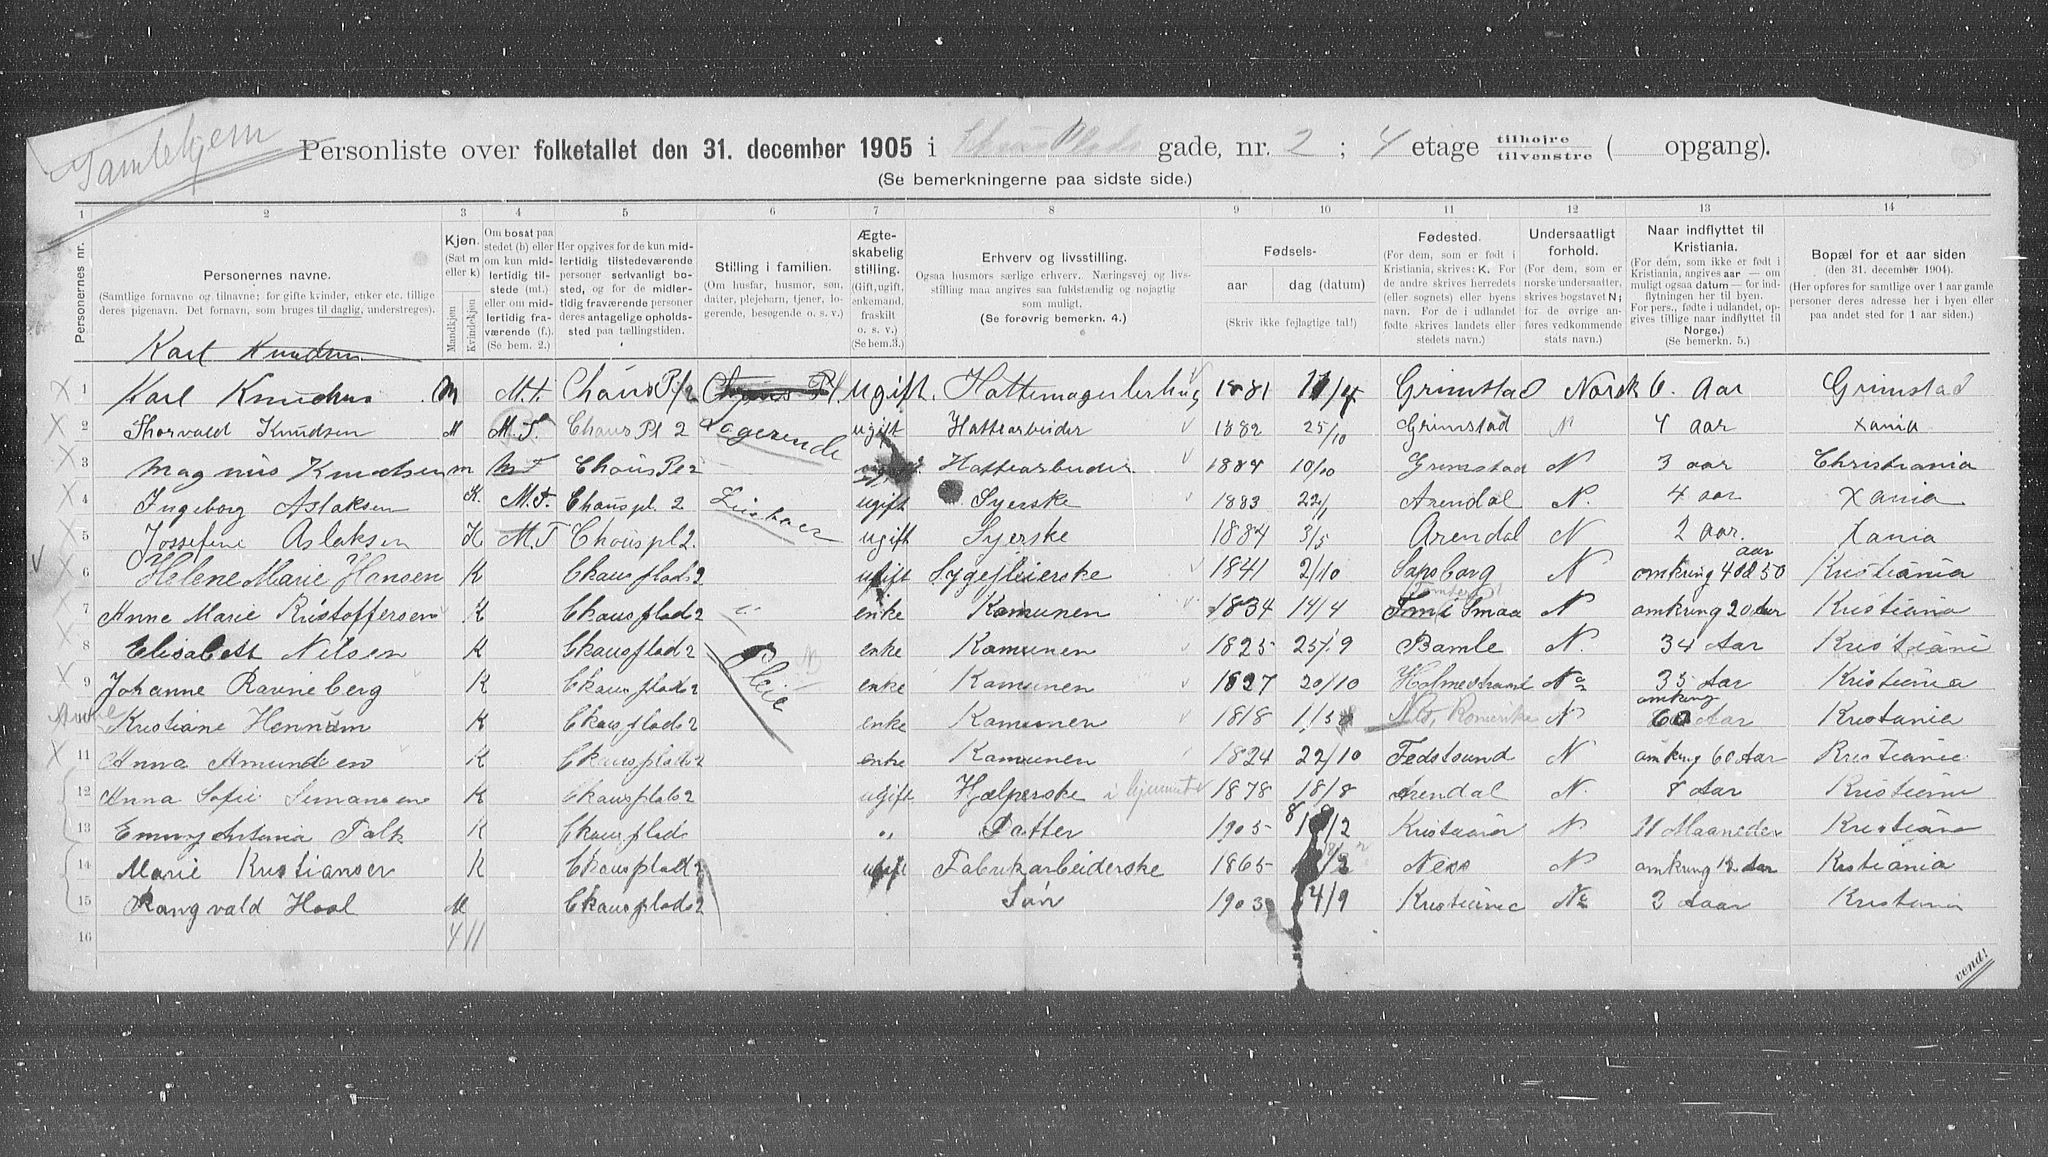 Samlehjem
Personliste over folketallet den 31. december 1905 i Schous Plads gade, nr. 2 ; 4 etage tilhøjre tilvenstre ( opgang).
(Se bemerkningerne paa sidste side.)
1 2 3 4 5 6 7 8 9 10 11 12 13 14
Personernes nr.
Personernes navne.
(Samtlige fornavne og tilnavne; for gifte kvinder, enker etc. tillige deres pigenavn. Det fornavn, som bruges til daglig, understreges).
Kjøn.
(Sæt m eller k)
Mandkjøn
Kvindekjøn
Om bosat paa stedet (b) eller om kun midlertidig tilstede (mt.) eller om midlertidig fraværende (f.)
(Se bem. 2.)
Her opgives for de kun midlertidig tilstedeværende personer sedvanligt bosted, og for de midlertidig fraværende personer deres antagelige opholdssted paa tællingstiden.
Stilling i familien.
(Om husfar, husmor, søn, datter, plejebarn, tjener, logerende, besøgende o. s. v.)
Ægteskabelig stilling.
(Gift, ugift, enkemand, fraskilt o. s. v.)
(Se bem. 3.)
Erhverv og livsstilling.
Ogsaa husmors særlige erhverv. Næringsvej og livsstilling maa angives saa fuldstændig og nøjagtig som muligt.
(Se forøvrig bemerkn. 4.)
Fødsels-
aar dag (datum)
(Skriv ikke fejlagtige tal!)
Fødested.
(For dem, som er født i Kristiania, skrives: K. For de andre skrives herredets (eller sognets) eller byens navn. For de i udlandet fødte skrives landets eller stedets navn.)
Undersaatligt forhold.
(For dem, som er norske undersaatter, skrives bogstavet N; for de øvrige anføres vedkommende stats navn.)
Naar indflyttet til Kristiania.
(For dem, som ikke er født i Kristiania, angives aar — om muligt ogsaa datum — for indflytningen her til byen. For pers., fødte i udlandet, opgives tillige naar indflyttet til Norge.)
(Se bemerkn. 5.)
Bopæl for et aar siden
(den 31. december 1904).
(Her opføres for samtlige over 1 aar gamle personer deres adresse her i byen eller paa andet sted for 1 aar siden.)
Karl Knudsen
1 Karl Knudsen M M.t. Chous Pl 2 ugift. Hattemagerlerling 1881 11/4 Grimstad Norsk 6. Aar Grimstad
2 Thorvald Knudsen M M.T. Chous Pl 2 Logerende ugift Hattearbeider 1882 25/10 Grimstad N 4 aar Xania
3 Magnus Knudsen m MT Chous Pl 2 Hattearbeider 1884 10/10 Grimstad N 3 aar Christiania
4 Ingeborg Aslaksen K. M.T. Chouspl. 2 ugift Syerske 1883 22/1 Arendal N. 4 aar Xania
5 Jossefine Aslaksen K M.T Chouspl 2. ugift Syerske 1884 3/5 Arendal N 2 aar. Xania
6 Helene Marie Hansen K Ckausplads 2 ugift Sygepleierske 1841 2/10 Sapsborg N omkring 40 a 50 aar Kristiania
7 Anne Marie Kristoffersen K Ckausplads 2 enke Komunen 1834 14/4 Smaa N omkring 20 Aar Kristiania
8 Elisabett Nilsen K Ckausplads 2 Pleie enke Komunen 1825 25/9 Bamle N. 34 Aar Kristiani
9 Johanne Ravneberg K Ckausplads 2 enke Komunen 1827 20/10 Holmestrand N 35 Aar Kristiania
Kristiane Hennum K Ckausplads 2 enke Komunen 1818 Romerike N omkring 60 Aar Kristiania
11 Anna Amundsen K Ckausplads 2 enke Komunen 1824 22/10 Fedstsund N omkring 60 Aar Kristiania
12 Anna Sofie Simansen K Ckausplads 2 ugift Hjelperske i hjemmet 1878 18/8 Arendal N. 8 Aar Kristiania
13 Emmy Antonia Falk K Ckausplads " Datter 1905 Kristiania N 11 Maaneder Kristiania
14 Marie Kristiansen K Ckausplads 2 ugift Fabrikarbeiderske 1865 Ness N omkring 12 Aar Kristiania
15 Rangvald Hoal M Ckausplads 2 Søn 1903 4/9 Kristiania N 2 Aar Kristiania
16 4 11
vend!